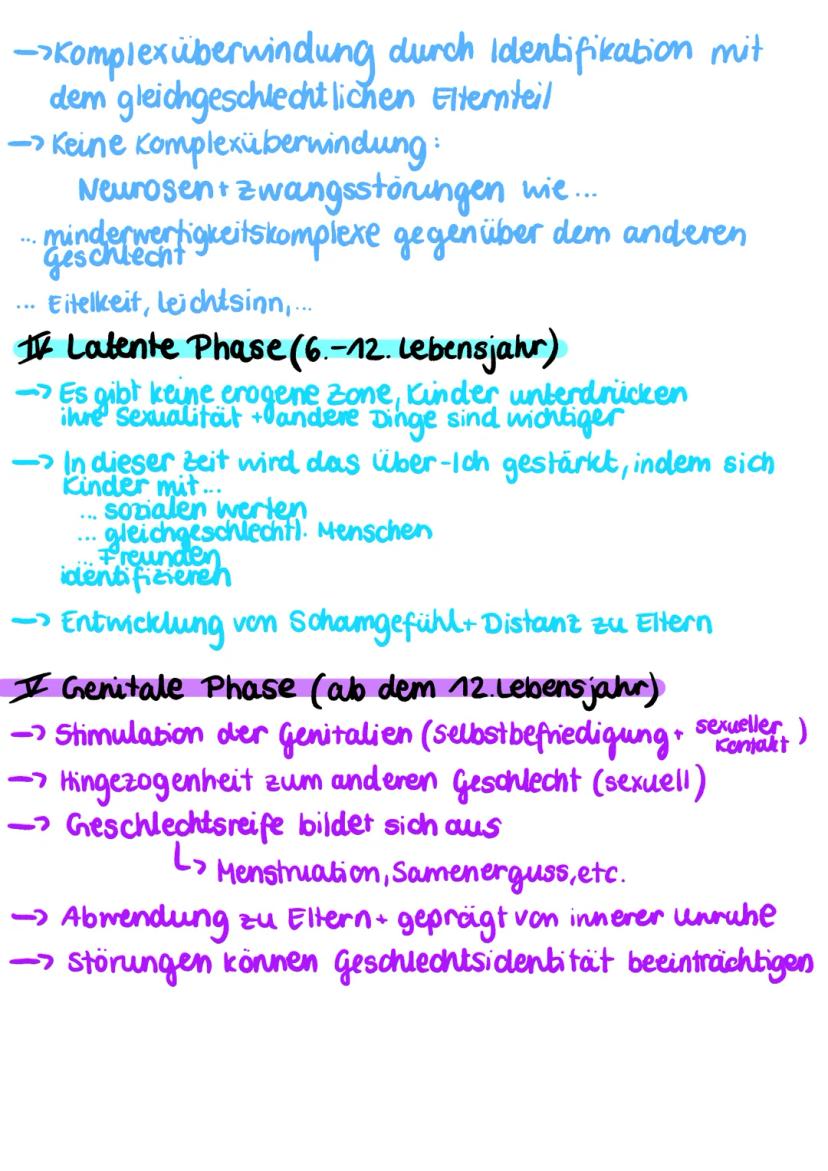 →Komplexüberwindung durch Identifikation mit
dem gleichgeschlechtlichen Elternteil
→ Keine Komplexüberwindung:
Neurosen + Zwangsstörungen wie ...
... minderwertigkeitskomplexe gegenüber dem anderen
Geschlecht
... Eitelkeit, Leichtsinn,...
IV Latente Phase (6.-12. Lebensjahr)
→ Es gibt keine erogene Zone, Kinder unterdrücken
ihre Sexualität + andere Dinge sind wichtiger
→ In dieser Zeit wird das Über-Ich gestärkt, indem sich
Kinder mit...
... sozialen werten
... gleichgeschlechtl. Menschen
... Freunden
identifizieren
→ Entwicklung von Schamgefühl + Distanz zu Eltern
V Genitale Phase (ab dem 12. Lebensjahr)
→ Stimulation der Genitalien (Selbstbefriedigung + sexueller Kontakt)
→ Hingezogenheit zum anderen Geschlecht (sexuell)
→ Geschlechtsreife bildet sich aus
↳ Menstruation, Samenerguss, etc.
→ Abwendung zu Eltern + geprägt von innerer Unruhe
→ Störungen können Geschlechtsidentität beeinträchtigen